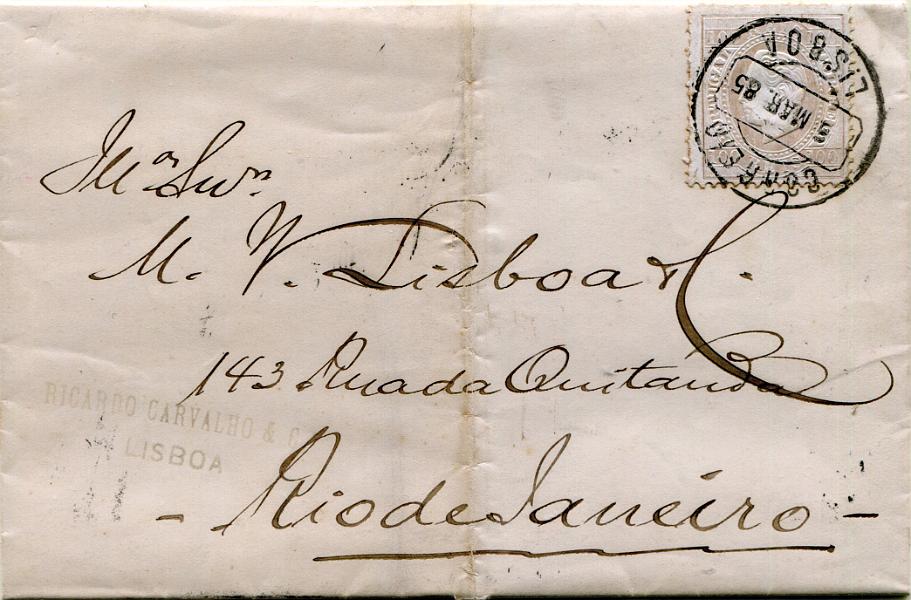 LISBOA
5 MAR. 85
CORREIO
Illmos Snrs
M. V. Lisboa & C.
143 Rua da Quitanda
RICARDO CARVALHO & C.
LISBOA
- Rio de Janeiro -